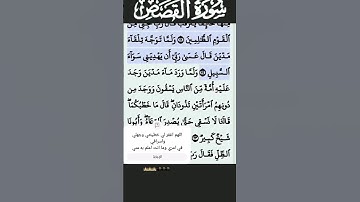 سُورَةُ الْقَصَصِ
ٱلْقَوْمِ ٱلظَّٰلِمِينَ ۝ وَلَمَّا تَوَجَّهَ تِلْقَآءَ
مَدْيَنَ قَالَ عَسَىٰ رَبِّىٓ أَن يَهْدِيَنِى سَوَآءَ
ٱلسَّبِيلِ ۝ وَلَمَّا وَرَدَ مَآءَ مَدْيَنَ وَجَدَ
عَلَيْهِ أُمَّةً مِّنَ ٱلنَّاسِ يَسْقُونَ وَوَجَدَ مِن
دُونِهِمُ ٱمْرَأَتَيْنِ تَذُودَانِ قَالَ مَا خَطْبُكُمَا
قَالَتَا لَا نَسْقِى حَتَّىٰ يُصْدِرَ ٱلرِّعَآءُ وَأَبُونَا
شَيْخٌ كَبِيرٌ
اللهم اغفر لي خطيئتي وجهلي
وإسرافي
في أمري وما أنت أعلم به مني
ٱلظِّلِّ فَقَالَ رَبِّ